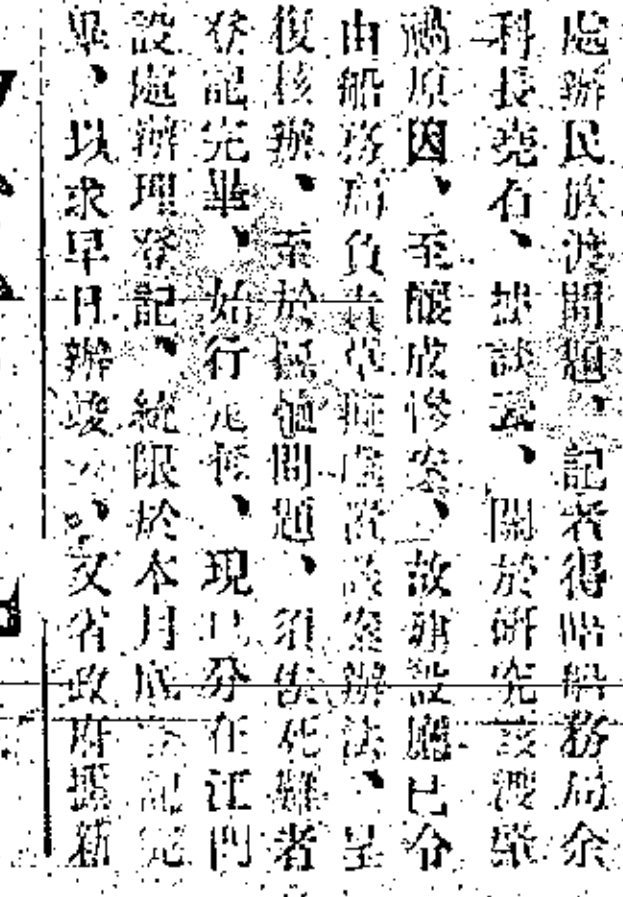 處辦民族渡問題、記者得晤船務局余
科長堯石、據談云、關於研究該渡肇
禍原因、至釀成慘案、故建設廳已令
由船務局負責草擬處置該案辦法、呈
復核辦、至於撫恤問題、須俟死難者
登記完畢、始行定奪、現已分在江門
設處辦理登記、統限於本月底登記完
畢、以求早日辦竣云、又省政府據新